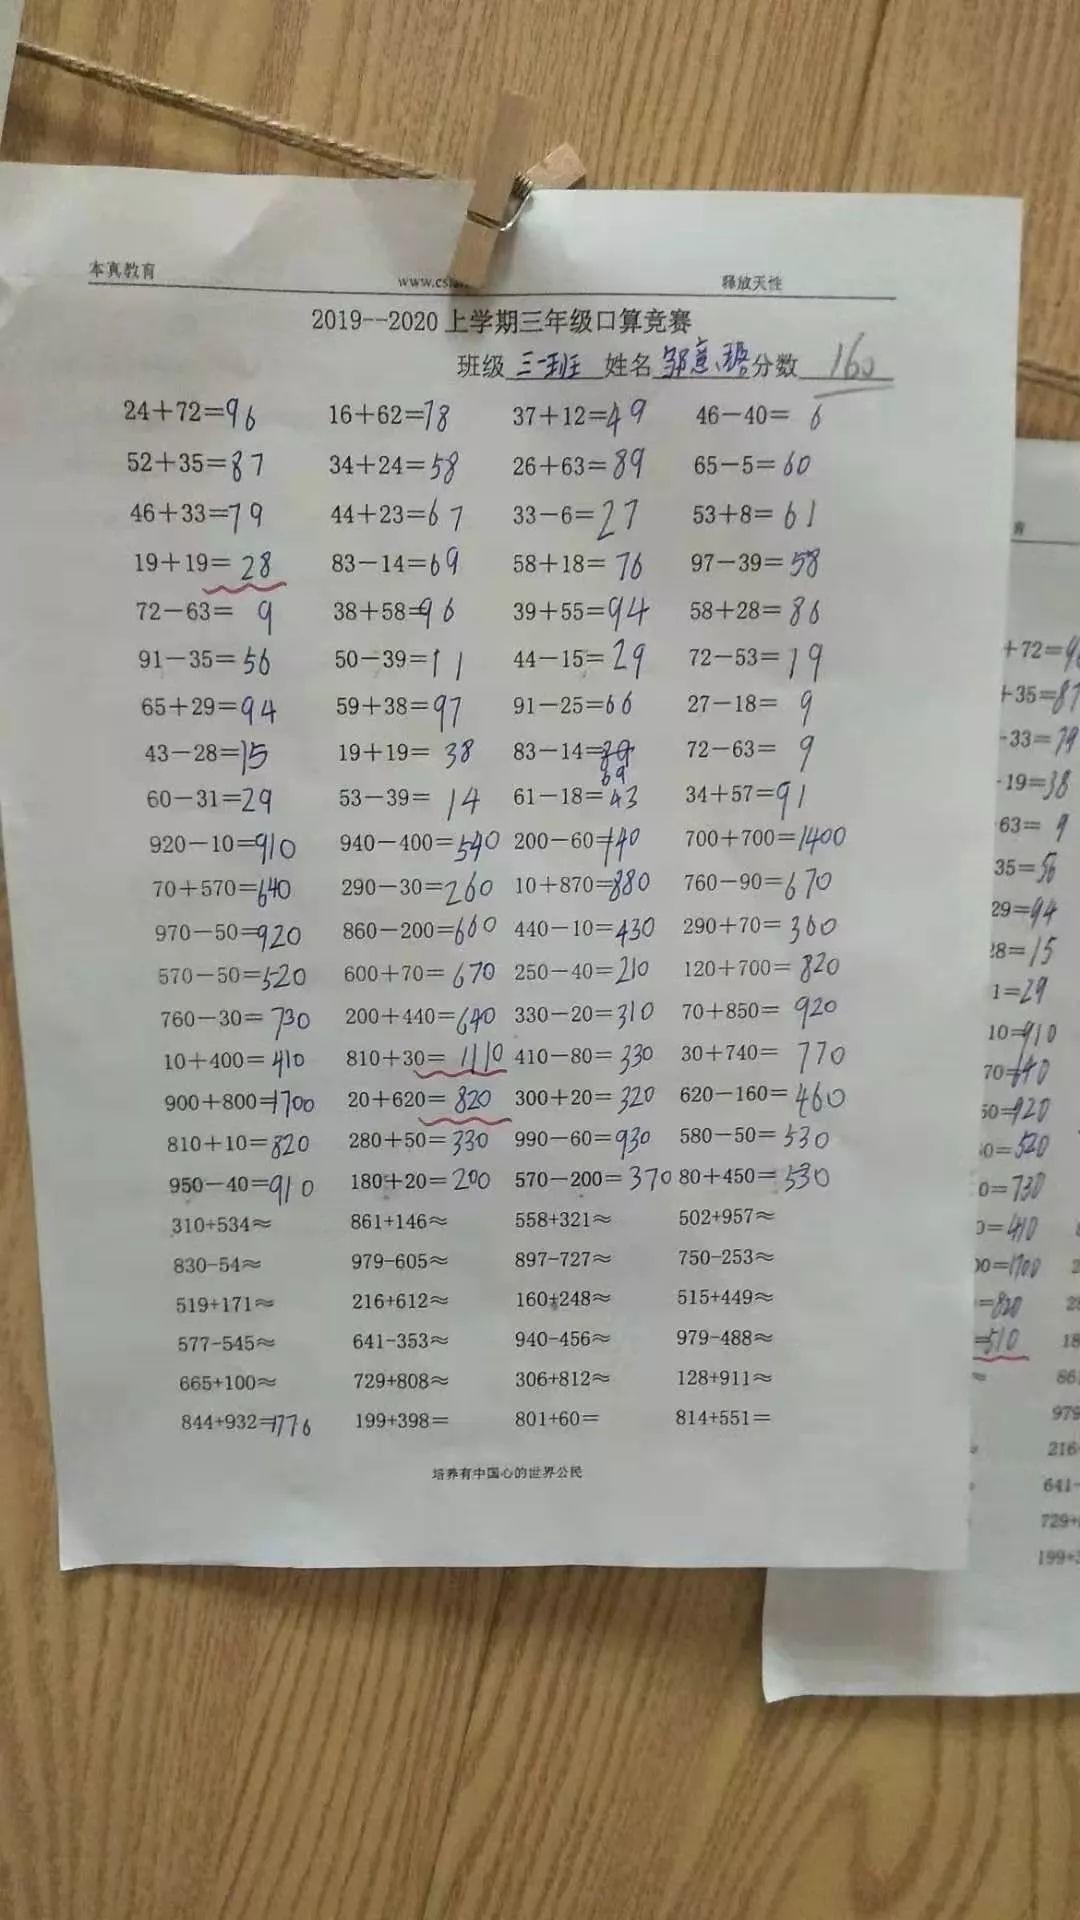 本真教育 释放天性
2019--2020上学期三年级口算竞赛
班级 三一班 姓名 分数 160
24+72=96 16+62=78 37+12=49 46-40=6
52+35=87 34+24=58 26+63=89 65-5=60
46+33=79 44+23=67 33-6=27 53+8=61
19+19=28 83-14=69 58+18=76 97-39=58
72-63=9 38+58=96 39+55=94 58+28=86
91-35=56 50-39=11 44-15=29 72-53=19
65+29=94 59+38=97 91-25=66 27-18=9
43-28=15 19+19=38 83-14=69 72-63=9
60-31=29 53-39=14 61-18=43 34+57=91
920-10=910 940-400=540 200-60=140 700+700=1400
70+570=640 290-30=260 10+870=880 760-90=670
970-50=920 860-200=660 440-10=430 290+70=360
570-50=520 600+70=670 250-40=210 120+700=820
760-30=730 200+440=640 330-20=310 70+850=920
10+400=410 810+30=1110 410-80=330 30+740=770
900+800=1700 20+620=820 300+20=320 620-160=460
810+10=820 280+50=330 990-60=930 580-50=530
950-40=910 180+20=200 570-200=370 80+450=530
310+534≈ 861+146≈ 558+321≈ 502+957≈
830-54≈ 979-605≈ 897-727≈ 750-253≈
519+171≈ 216+612≈ 160+248≈ 515+449≈
577-545≈ 641-353≈ 940-456≈ 979-488≈
665+100≈ 729+808≈ 306+812≈ 128+911≈
844+932=1776 199+398= 801+60= 814+551=
培养有中国心的世界公民
育
+72=
+35=87
-33=79
-19=38
63=9
35=56
29=94
28=15
1=29
10=910
70=640
50=920
0=520
0=730
0=410
00=1700
=820
=510
≈
979
216
641-
729+
199+